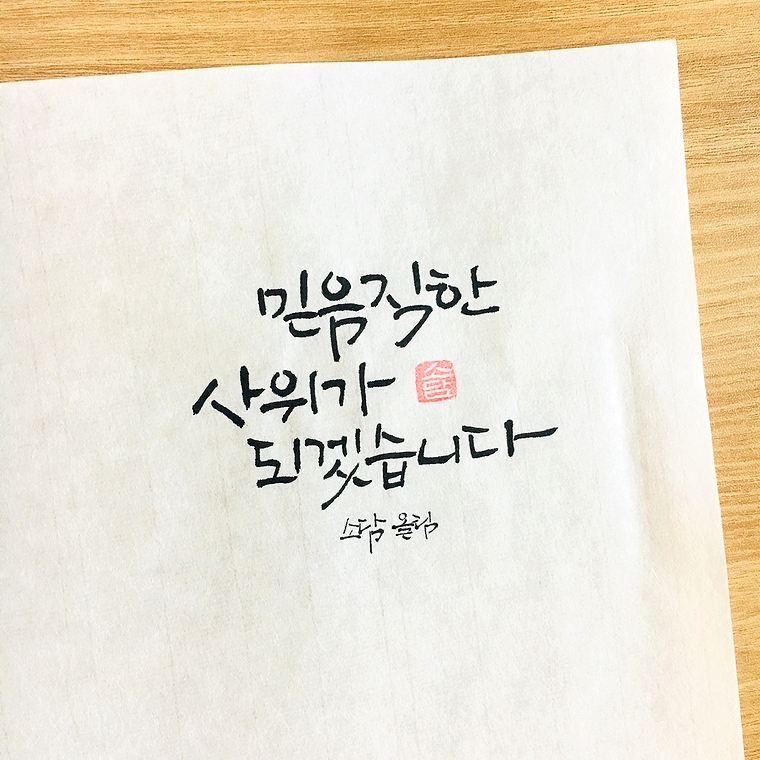 믿음직한
사위가
소담
되겠습니다
소담 올림